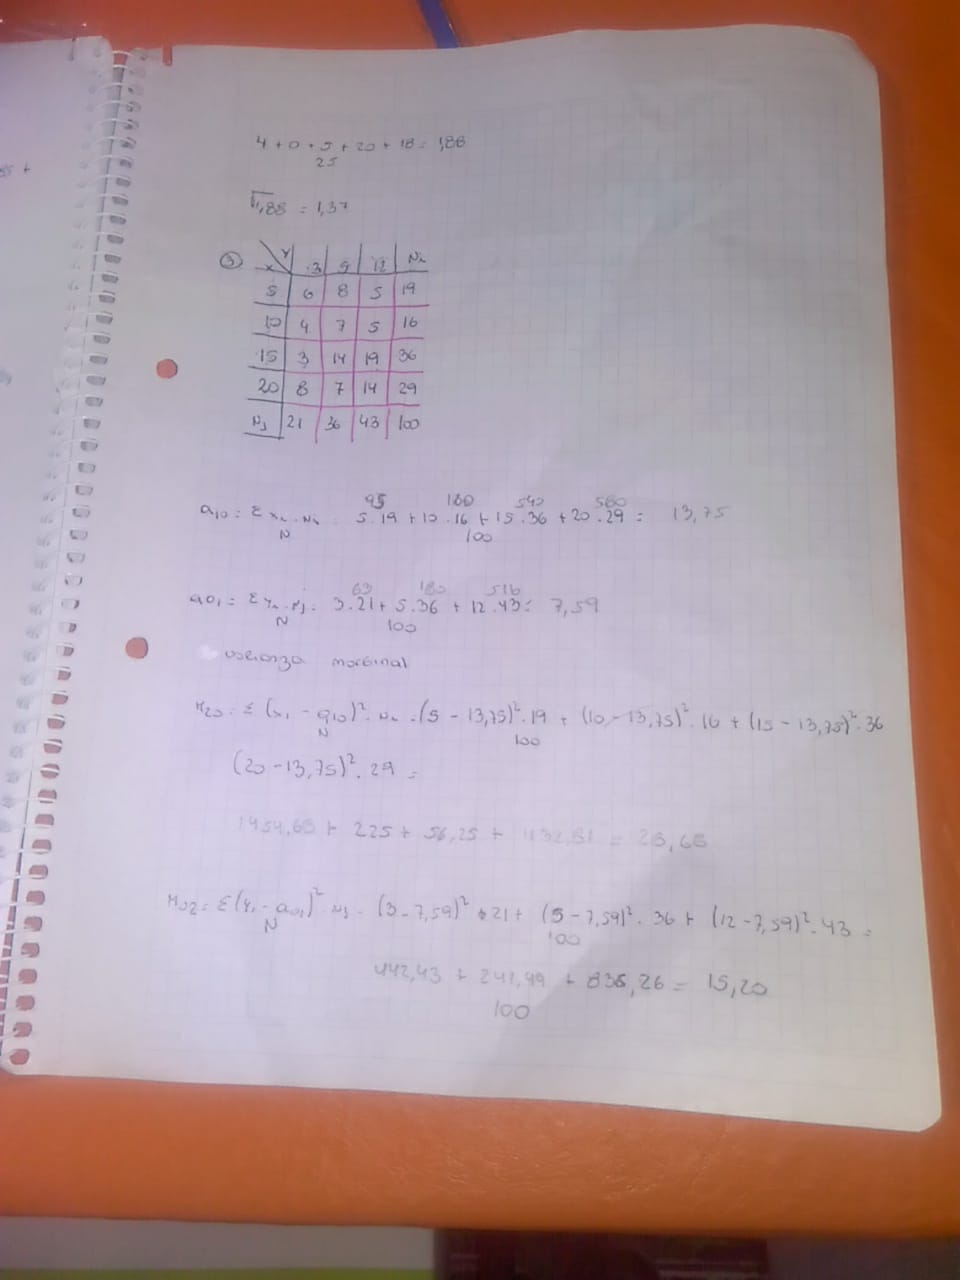 4 + 0 + 5 + 20 + 18 = 1,88
25
√1,88 = 1,37
③ x Y 3 5 12 Ni
5 6 8 5 19
10 4 7 5 16
15 3 14 19 36
20 8 7 14 29
Nj 21 36 43 100
95 160 540 580
a10 = Σ xi . Ni 5.19 + 10.16 + 15.36 + 20.29 = 13,75
N 100
63 180 516
a01 = Σ Yi . Nj = 3.21 + 5.36 + 12.43 = 7,59
N 100
varianza marginal
M20 = Σ (xi - a10)² . Ni = (5 - 13,75)² . 19 + (10 - 13,75)² . 16 + (15 - 13,75)² . 36
N 100
(20 - 13,75)² . 29 =
1454,68 + 225 + 56,25 + 1132,81 = 28,68
M02 = Σ (Yi - a01)² . Nj = (3 - 7,59)² . 21 + (5 - 7,59)² . 36 + (12 - 7,59)² . 43 =
N 100
442,43 + 241,49 + 836,26 = 15,20
100